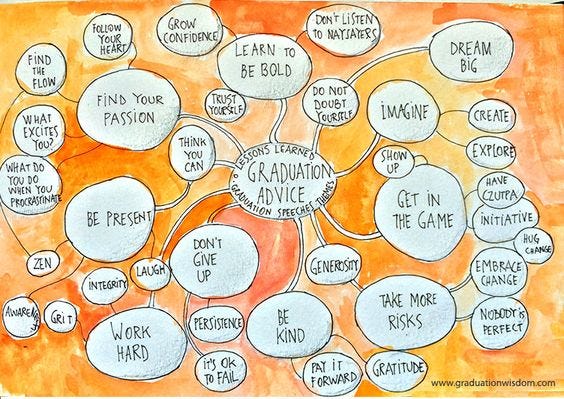 FOLLOW
YOUR
HEART
GROW
CONFIDENCE
DON'T LISTEN
TO
NAYSAYERS
LEARN TO
BE BOLD
DREAM
BIG
FIND
THE
FLOW
FIND YOUR
PASSION
TRUST
YOURSELF
DO NOT
DOUBT
YOURSELF
IMAGINE
CREATE
EXPLORE
WHAT
EXCITES
YOU?
THINK
YOU
CAN
LESSONS LEARNED
GRADUATION
ADVICE
GRADUATION SPEECHES THEMES
SHOW
UP
WHAT DO
YOU DO
WHEN YOU
PROCRASTINATE
BE PRESENT
GET IN
THE GAME
HAVE
CZUTPA
INITIATIVE
HUG
CHANGE
ZEN
DON'T
GIVE
UP
LAUGH
INTEGRITY
GENEROSITY
EMBRACE
CHANGE
TAKE MORE
RISKS
NOBODY IS
PERFECT
GRIT
WORK
HARD
PERSISTENCE
BE
KIND
IT'S OK
TO FAIL
PAY IT
FORWARD
GRATITUDE
www.graduationwisdom.com